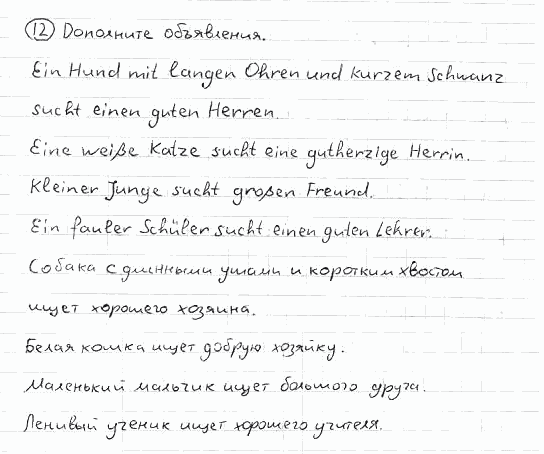 12 Дополните объявления.
Ein Hund mit langen Ohren und kurzem Schwanz
sucht einen guten Herren.
Eine weiße Katze sucht eine gutherzige Herrin.
Kleiner Junge sucht großen Freund.
Ein fauler Schüler sucht einen guten Lehrer.
Собака с длинными ушами и коротким хвостом
ищет хорошего хозяина.
Белая кошка ищет добрую хозяйку.
Маленький мальчик ищет большого друга.
Ленивый ученик ищет хорошего учителя.